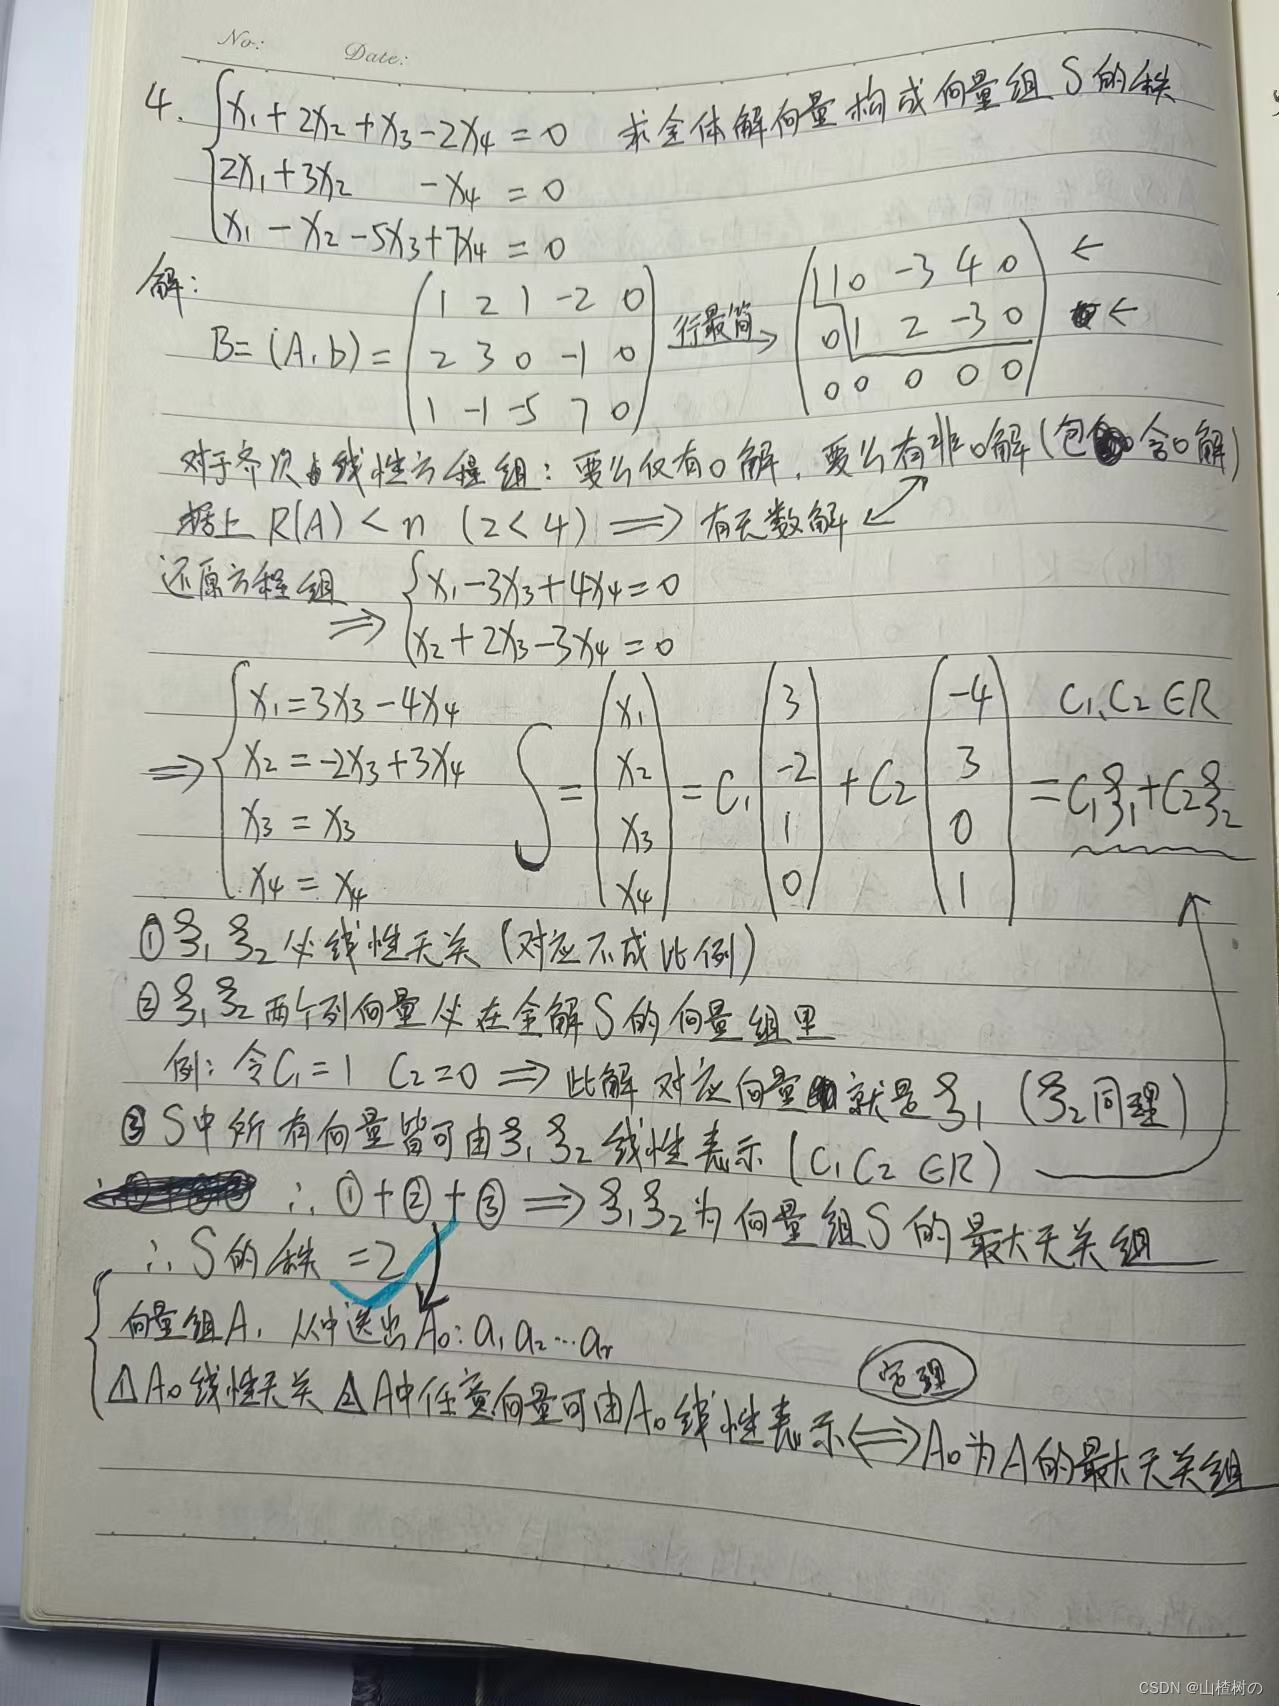 No:
Date:
4. { x₁ + 2x₂ + x₃ - 2x₄ = 0 求全体解向量构成向量组S的秩
2x₁ + 3x₂ - x₄ = 0
x₁ - x₂ - 5x₃ + 7x₄ = 0
解:
B = (A, b) = ( 1 2 1 -2 0 ; 2 3 0 -1 0 ; 1 -1 -5 7 0 ) 行最简 → ( 1 0 -3 4 0 ; 0 1 2 -3 0 ; 0 0 0 0 0 ) ← ←
对于齐次线性方程组: 要么仅有0解, 要么有非0解(包含0解)
据上 R(A) < n (2<4) ⟹ 有无数解
还原方程组 ⟹ { x₁ - 3x₃ + 4x₄ = 0
x₂ + 2x₃ - 3x₄ = 0
⟹ { x₁ = 3x₃ - 4x₄
x₂ = -2x₃ + 3x₄
x₃ = x₃
x₄ = x₄
S = ( x₁ ; x₂ ; x₃ ; x₄ ) = C₁ ( 3 ; -2 ; 1 ; 0 ) + C₂ ( -4 ; 3 ; 0 ; 1 ) = C₁ξ₁ + C₂ξ₂ C₁、C₂ ∈ R
① ξ₁ ξ₂ 必线性无关 (对应不成比例)
② ξ₁ ξ₂ 两个列向量必在全解S的向量组里
例: 令C₁ = 1 C₂ = 0 ⟹ 此解对应向量就是ξ₁ (ξ₂同理)
③ S中所有向量皆可由ξ₁ ξ₂ 线性表示 (C₁ C₂ ∈ R)
∴ ① + ② + ③ ⟹ ξ₁ ξ₂ 为向量组S的最大无关组
∴ S的秩 = 2
向量组A, 从中选出A₀: a₁ a₂ … aᵣ
△1 A₀线性无关 △2 A中任意向量可由A₀线性表示 ⟺ A₀为A的最大无关组
定理
CSDN @山楂树の